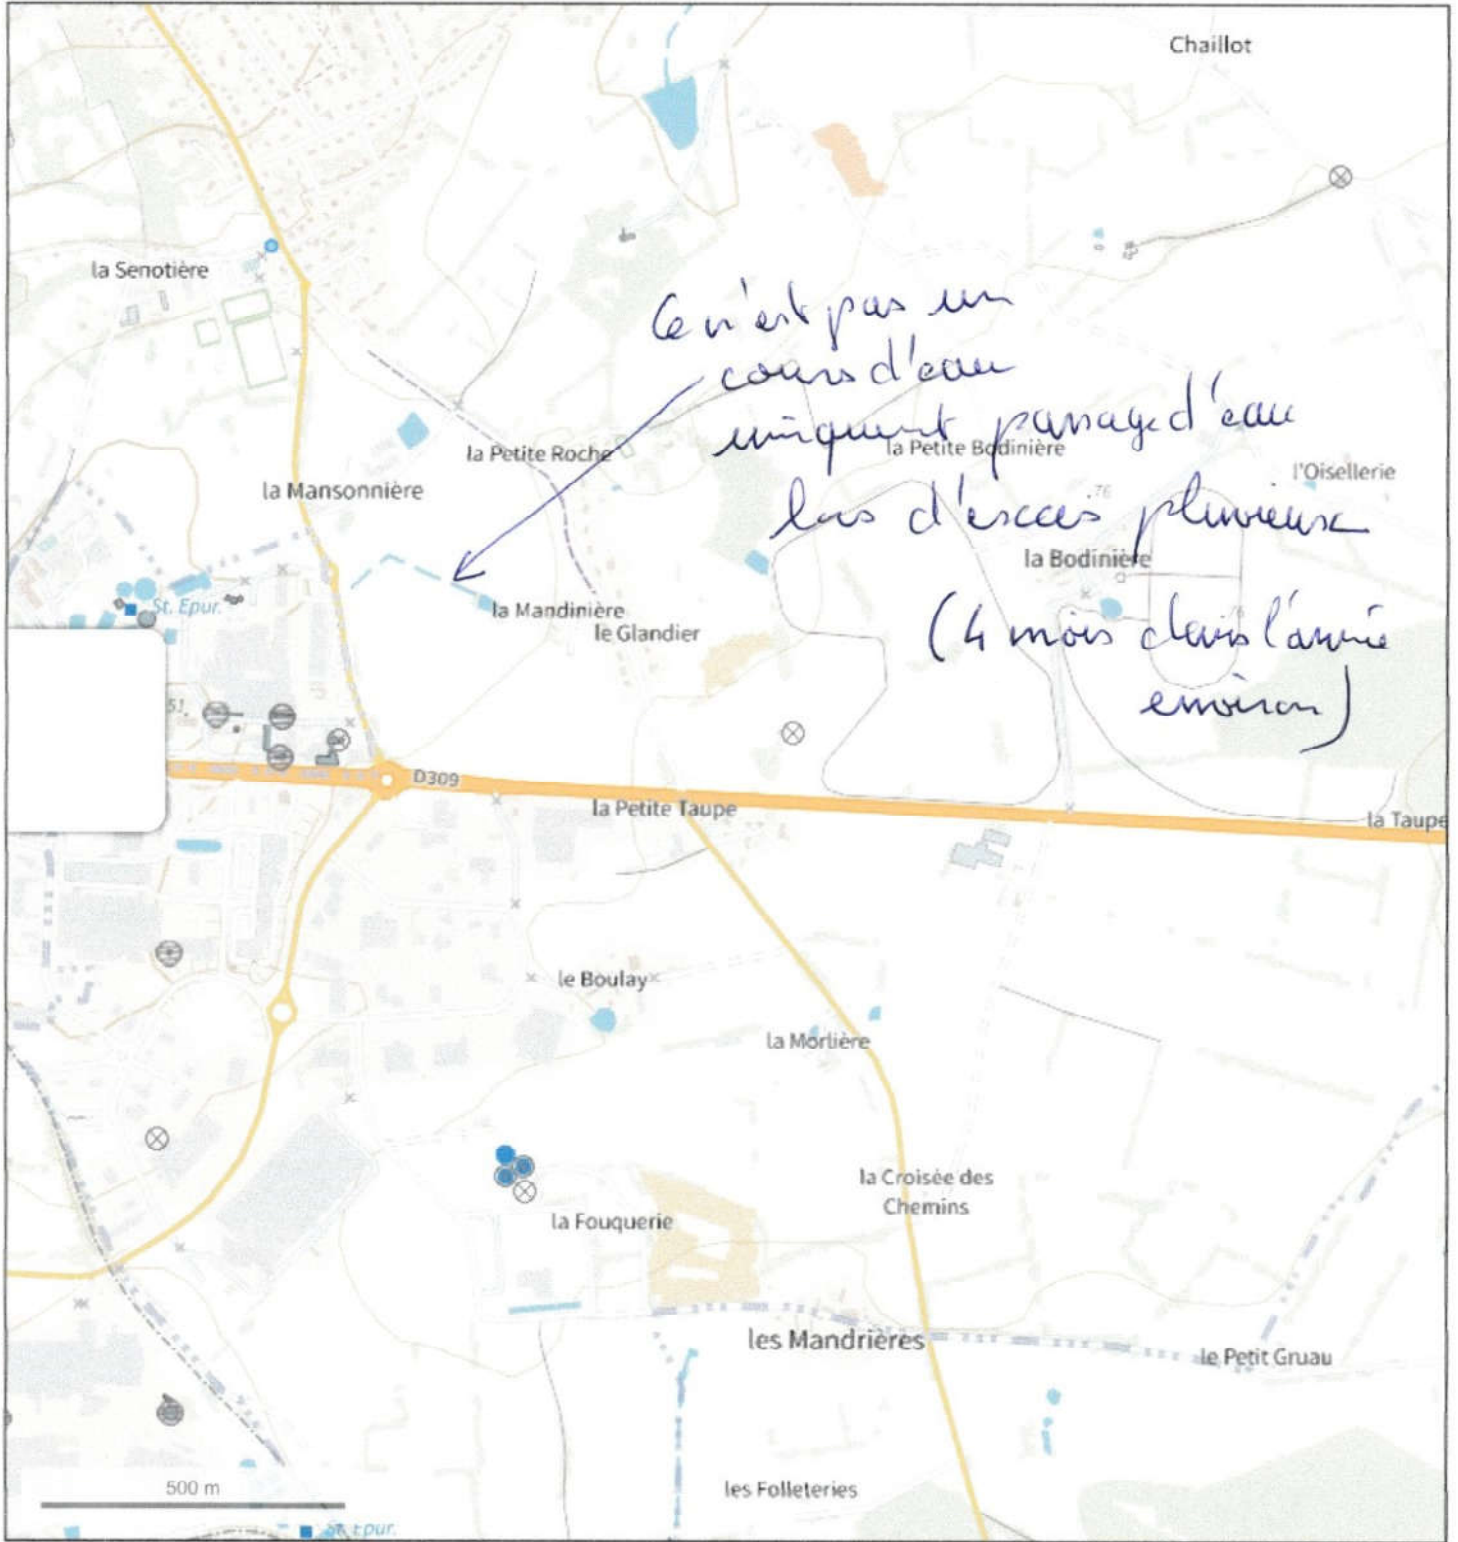 Chaillot
la Senotière
Ce n'est pas un
cours d'eau
uniquent passage d'eau
lors d'excès pluvieux
(4 mois dans l'année
environ)
la Petite Roche
la Petite Bodinière
l'Oisellerie
la Mansonnière
76
la Bodinière
St. Epur.
la Mandinière
le Glandier
51
D309
la Petite Taupe
la Taupe
le Boulay
la Morlière
la Croisée des
Chemins
la Fouquerie
les Mandrières
le Petit Gruau
500 m
les Folleteries
St. Epur.